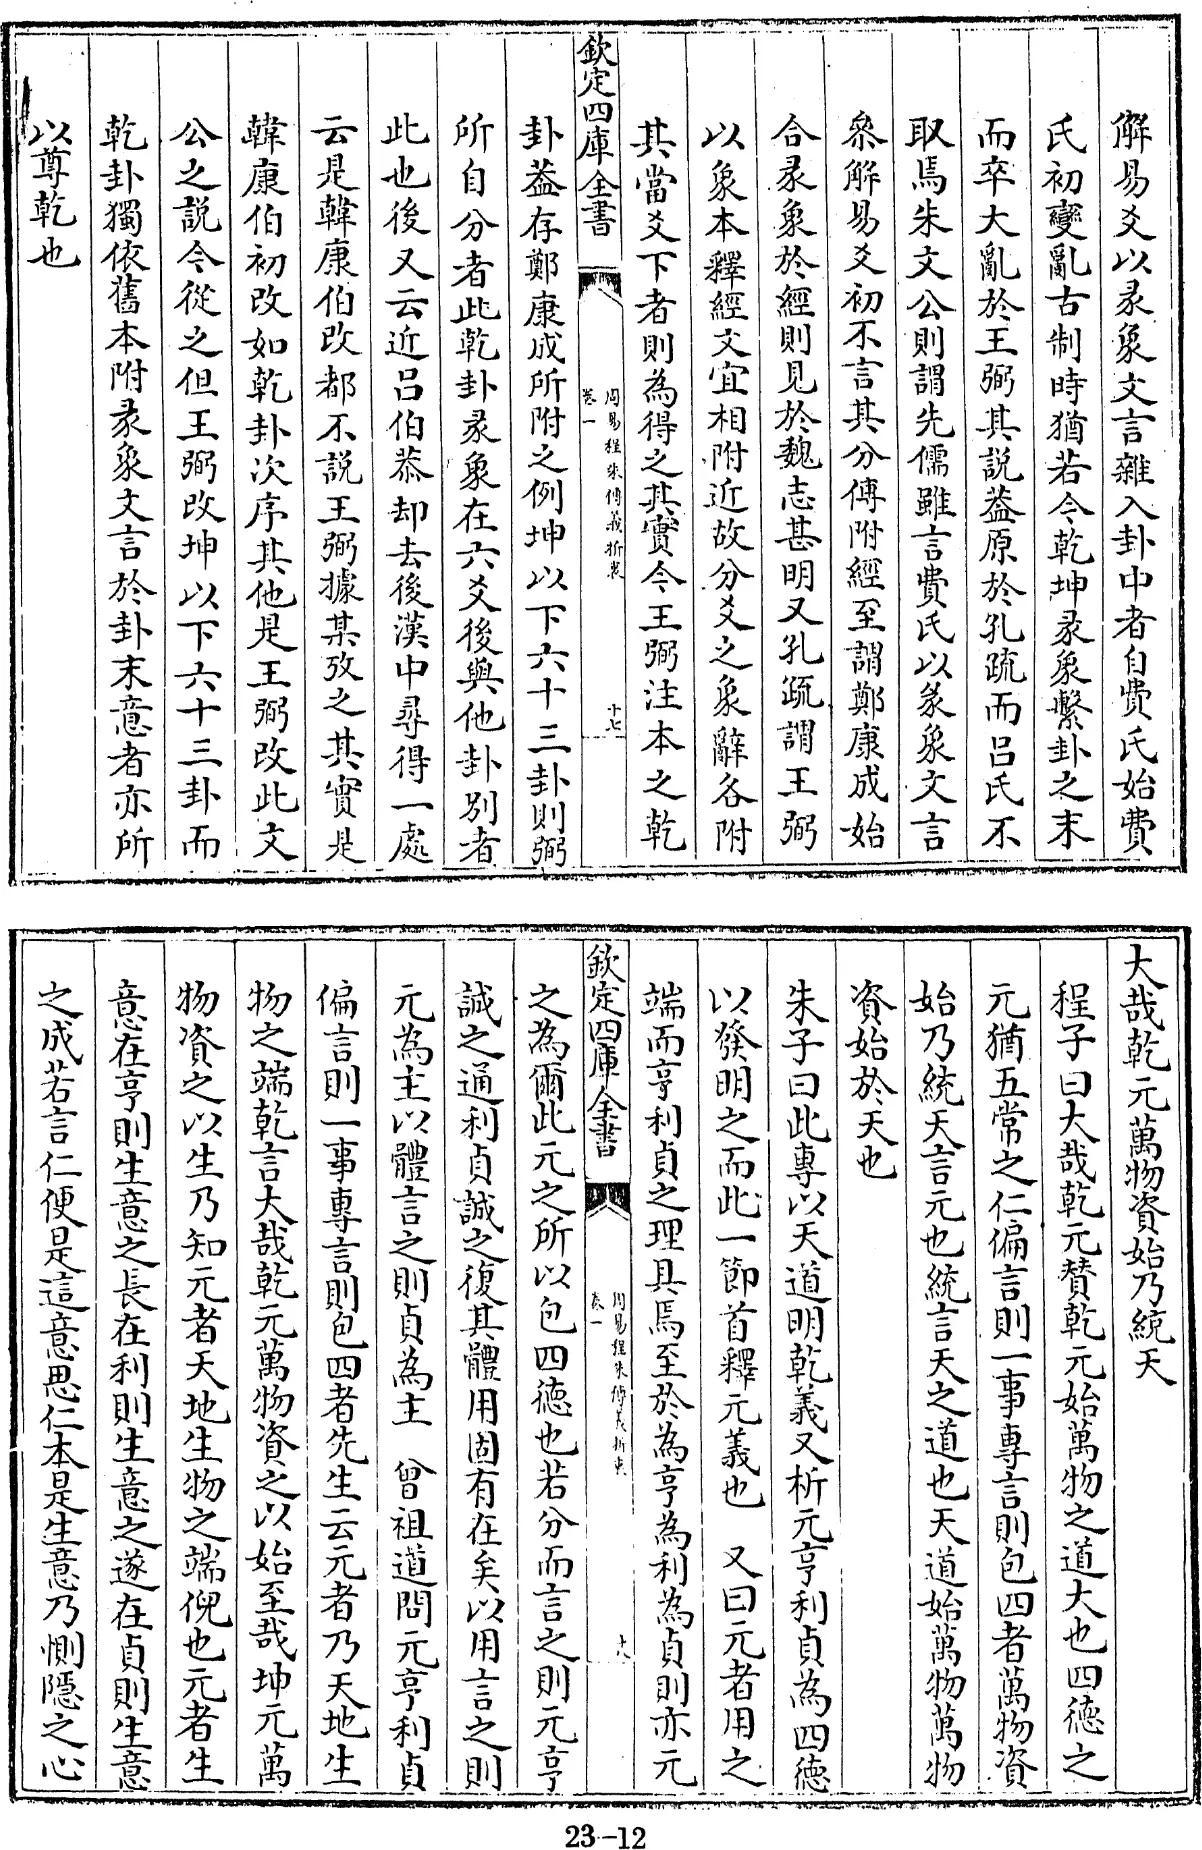 解易爻以彖象文言雜入卦中者自費氏始費
氏初變亂古制時猶若今乾坤彖象繫卦之末
而卒大亂於王弼其說葢原於孔疏而吕氏不
取焉朱文公則謂先儒雖言費氏以彖象文言
叅解易爻初不言其分傳附經至謂鄭康成始
合彖象於經則見於魏志甚明又孔疏謂王弼
以象本釋經文宜相附近故分爻之象辭各附
其當爻下者則為得之其實今王弼注本之乾
欽定四庫全書
周易程朱傳義折衷
卷一
十七
卦葢存鄭康成所附之例坤以下六十三卦則弼
所自分者此乾卦彖象在六爻後與他卦别者
此也後又云近吕伯恭却去後漢中尋得一處
云是韓康伯改都不說王弼據某攷之其實是
韓康伯初改如乾卦次序其他是王弼改此文
公之説今從之但王弼改坤以下六十三卦而
乾卦獨依舊本附彖象文言於卦末意者亦所
以尊乾也
大哉乾元萬物資始乃統天
程子曰大哉乾元賛乾元始萬物之道大也四徳之
元猶五常之仁偏言則一事專言則包四者萬物資
始乃統天言元也統言天之道也天道始萬物萬物
資始於天也
朱子曰此專以天道明乾義又析元亨利貞為四徳
以發明之而此一節首釋元義也 又曰元者用之
端而亨利貞之理具焉至於為亨為利為貞則亦元
欽定四庫全書
周易程朱傳義折衷
卷一
十八
之為爾此元之所以包四徳也若分而言之則元亨
誠之通利貞誠之復其體用固有在矣以用言之則
元為主以體言之則貞為主 曾祖道問元亨利貞
偏言則一事專言則包四者先生云元者乃天地生
物之端乾言大哉乾元萬物資之以始至哉坤元萬
物資之以生乃知元者天地生物之端倪也元者生
意在亨則生意之長在利則生意之遂在貞則生意
之成若言仁便是這意思仁本是生意乃惻隱之心
23-12